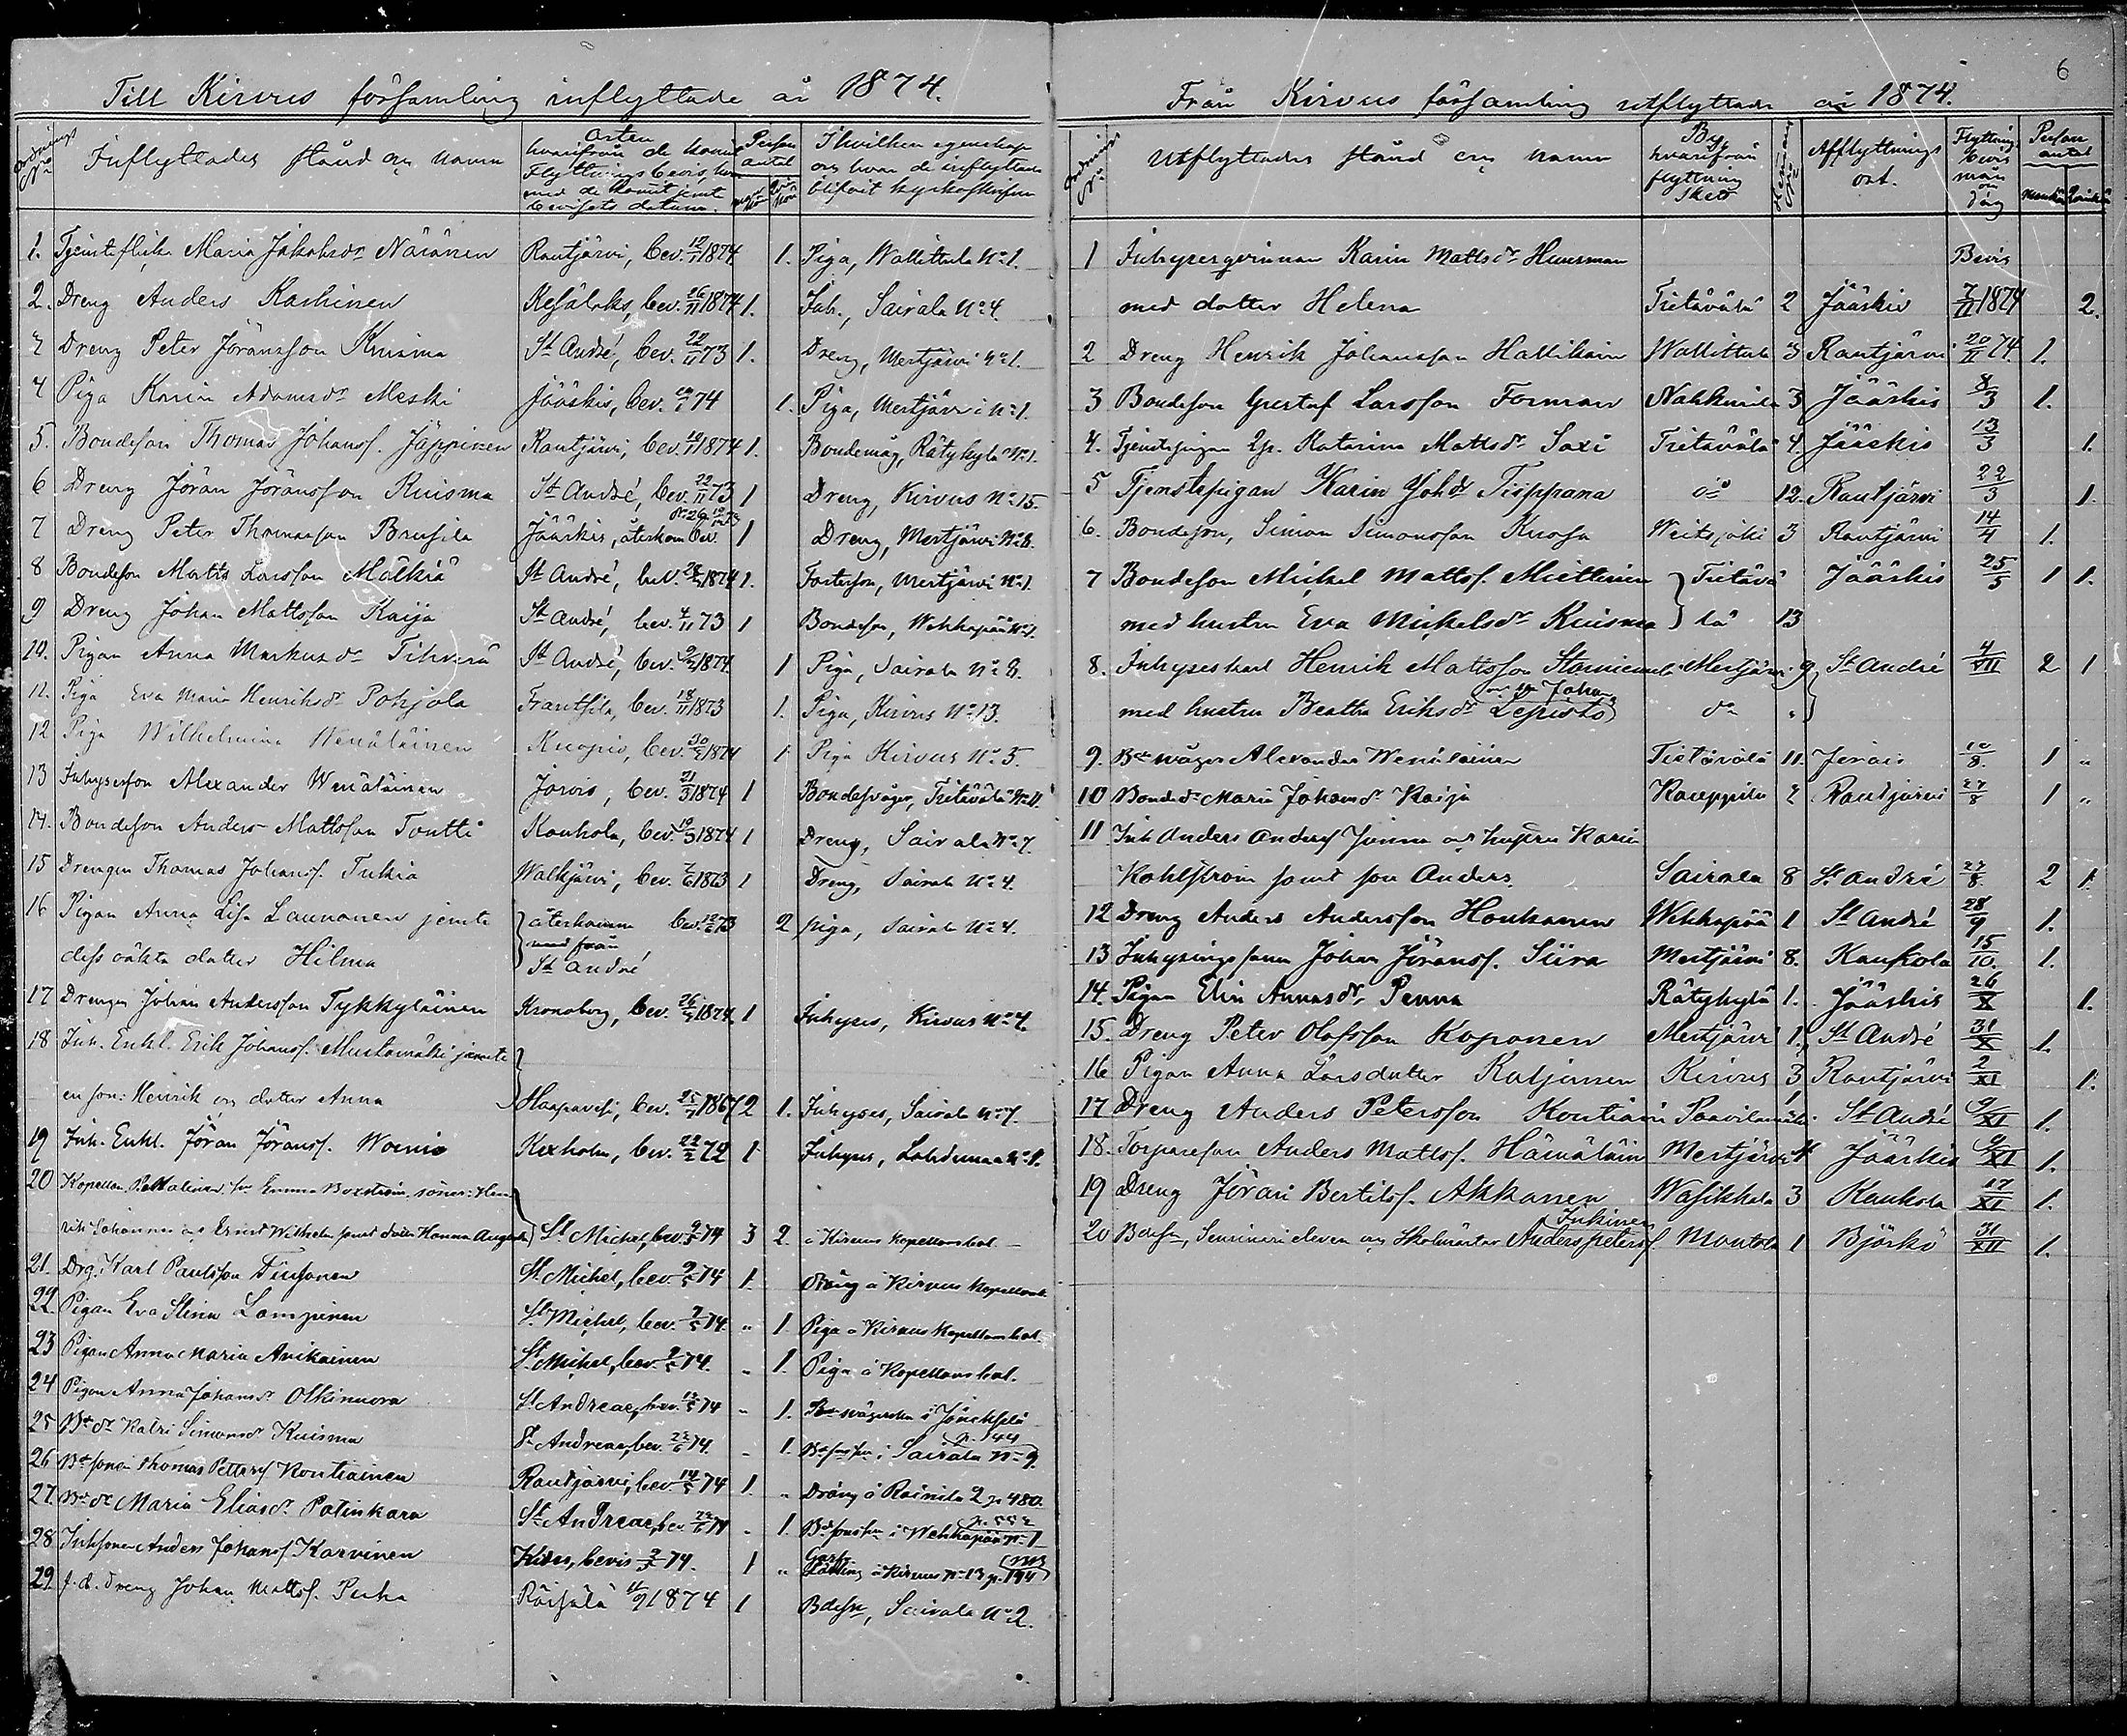 6
Till Kirvus församling inflyttade år 1874.
Ordnings No
Inflyttades stånd och namn
Orten hvarifrån de kommit
Flyttningsbevis
med de kommit jemte
bevisets datum.
Person antal
I hvilken egenskap
och hvar de inflyttade
blifvit kyrkoskrifne
1. Tjensteflicka Maria Jakobsdr Näränen Rautjärvi, bev. 1874 1. Piga, Wallittula No 1.
2. Dreng Anders Kashinen Kesälaks, bev. 26/11 1874 1. Inh., Sairala No 4.
3 Dreng Peter Jöransson Kuisma St André, bev. 22/11 73 1. Dreng, Mertjärvi No 1.
4 Piga Karin Adamsdr Meski Jääskis, bev. 74 1. Piga, Mertjärvi No 1.
5. Bondeson Thomas Johanss. Jäppinen Rautjärvi, bev. 1874 1. Bondemåg, Rätykylä No 1.
6 Dreng Jöran Jöransson Kuisma St André, bev. 22/11 73 1 Dreng, Kirvus No 15.
7 Dreng Peter Thomasson Brusila Jääskis, återkom bev. 1 Dreng, Mertjärvi No 8.
8 Bondeson Matts Larsson Mälkiä St André, bev. 1874 1. Fosterson, Mertjärvi No 1.
9 Dreng Johan Mattsson Kaija St André, bev. 4/11 73 1 Bondeson, Wehkapää No 1.
10. Pigan Anna Markusdr Tihverä St André, bev. 1874. 1 Piga, Sairala No 8.
11. Piga Eva Maria Henriksdr Pohjola Frantsila, bev. 18/11 1873 1. Piga, Kirvus No 13.
12 Piga Wilhelmina Wenäläinen Kuopio, bev. 1874 1 Piga Kirvus No 5.
13 Inhyseson Alexander Wenäläinen Jorois, bev. 21/3 1874 1 Bondesvåger, Tietävälä No 11.
14. Bondeson Anders Mattsson Tontti Kaukola, bev. 1874 1 Dreng, Sairala No 7.
15 Drengen Thomas Johanss. Tukia Walkjärvi, bev. 1873 1 Dreng, Sairala No 4.
16 Pigan Anna Lisa Launonen jemte återkomna bev. 73 2 piga, Sairala No 4.
dess oäkta dotter Hilma med från St André
17 Drengen Johan Andersson Tykkyläinen Kronoborg, bev. 1874 1 Inhyses, Kirvus No 4.
18 Inh. Enkl. Erik Johanss. Mustamäki jemte
en son: Henrik och dotter Anna Haapavesi, bev. 1867 2 1. Inhyses, Sairala No 7.
19 Inh. Enkl. Jöran Jöranss. Woinio Kexholm, bev. 22/2 72 1 Inhyses, No 1.
20 Kapellan fru Emma Boxström, söner: Hen
rik Johannes och Ernst Wilhelm samt dotter Hanna Augusta St Michel, bev. 74 3 2. å Kirvus Kapellansbol.
21. Drg. Karl Paulsson Tiusanen St Michel, bev. 9/5 74 1. Dräng å Kirvus Kapellansb.
22. Pigan Eva Stina Lampinen St Michel, bev. 74. " 1. Piga å Kirvus Kapellansbol.
23 Pigan Anna Maria Avikainen St Michel, bev. 74. " 1. Piga å Kapellansbol.
24 Pigan Anna Johansdr Olkinuora St Andreae, bev. 74 " 1.
25 Bdedr Katri Simonsdr Kuisma St Andreae, bev. 74. " 1. i Sairala No 9. p. 144
26 Bdesonen Thomas Petterss Kontiainen Rautjärvi, bev. 14/5 74 1. " Dräng å Rainila 2 p. 480.
27. Bdedr Maria Eliasdr Patinkara St Andreae, bev. 74 " 1. i Wehkapää No 1 p. 552
28 Inhsonen Anders Johanss. Karvinen Kides, bevis 74. 1 " Garfv. Lärling å Kirvus No 13 p. 194
29 f.d. dreng Johan Mattss. Puha Räisälä 1874 1 Bdesn, Sairala No 2.
Från Kirvus församling utflyttade år 1874.
Ordnings No
Utflyttades stånd och namn
By,
hvarifrån
flyttning
skett
Afflyttnings
ort.
Flyttnings
bevis
mån
och
dag
Person
antal
mankön
qvinkön
1 Inhysesqvinnan Karin Mattsdr Huusman Bevis
med dotter Helena Tietävälä 2 Jääskis 7/II 1874 2.
2 Dreng Henrik Johansson Hallikain Wallittula 3 Rautjärvi 20/II 74. 1.
3 Bondeson Gustaf Larsson Forman Nahkurila 3 Jääskis 8/3 1.
4. Tjenstepigan Katarina Mattsdr Saxi Tietävälä 4. Jääskis 13/3 1.
5 Tjenstepigan Karin Johdr Tiippana do 12. Rautjärvi 22/3 1.
6. Bondeson, Simon Simonsson Kuosa Weitsjoki 3 Rautjärvi 14/4 1.
7 Bondeson Mickel Mattss. Miettinen Tietävä Jääskis 25/5 1 1.
med hustru Eva Mickelsdr Kuisma lä 13
8. Inhyseskarl Henrik Mattsson Mertjärvi 9 St André 4/VII 2 1
med hustru Beatha Eriksdr Lepistö och sn Johan do "
9. Bdesvåger Alexander Wenäläinen Tietävälä 11. Jorois 10/8. 1 "
10 Bondedr Maria Johansdr Kaija Kauppila 2 Rautjärvi 27/8 1 "
11 Inh Anders Anderss Jonna och hustru Karin
Kohlström samt son Anders. Sairala 8 St André 27/8. 2 1.
12 Dreng Anders Andersson Houkanen Wehkapää 1 St André 28/9 1.
13 Inhysingssonen Johan Jöranss. Siira Mertjärvi 8. Kaukola 15/10. 1.
14. Pigan Elin Annasdr Penna Rätykylä 1. Jääskis 26/X 1.
15. Dreng Peter Olofsson Koponen Mertjärvi 1. St André 31/X 1.
16 Pigan Anna Larsdotter Katjonen Kirvus 3 Rautjärvi 2/XI 1.
17 Dreng Anders Petersson Kontiain Paavilamäki 1 St André 9/XI 1.
18. Torpareson Anders Mattss. Hämäläin Mertjärvi 4 Jääskis 9/XI 1.
19 Dreng Jöran Bertilss. Akkanen Wasikkala 3 Kaukola 17/XI 1.
20 Bdesn, Seminarieleven och Skolmästar Anders Peterss. Inkinen Montola 1 Björkö 31/XII 1.